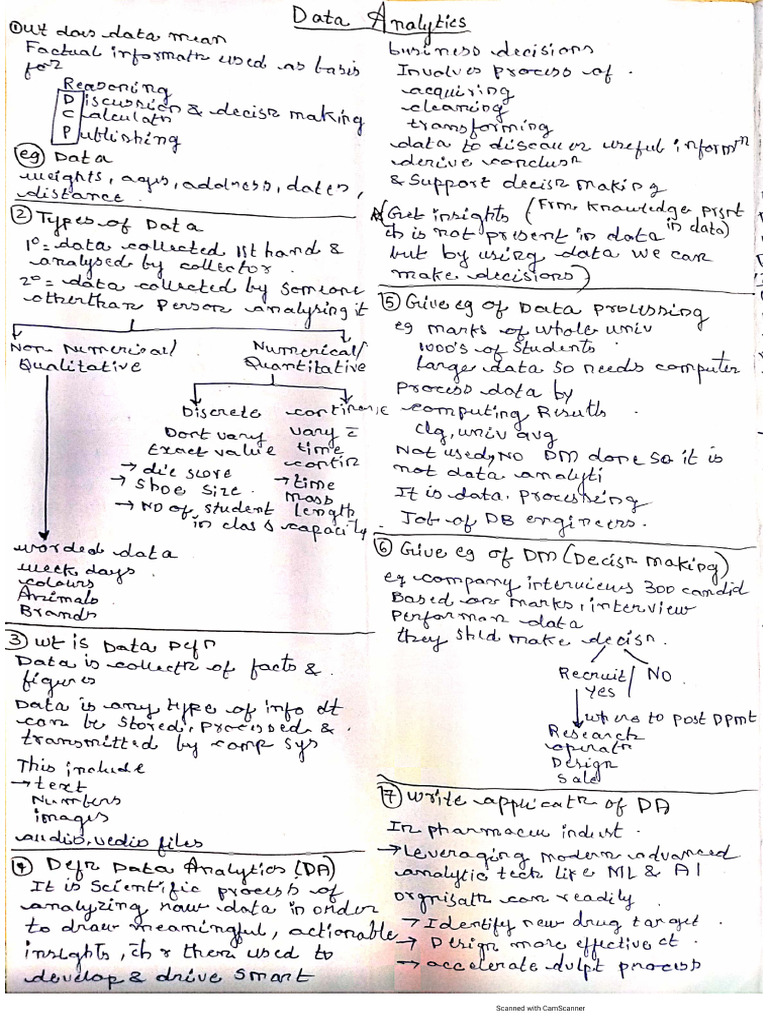 Data Analytics
① Wt does data mean
Factual informatn used as basis
for
Reasoning
Discussion & decisn making
Calculatn
Publishing
eg Data
weights, ages, address, dates,
distance
② Types of Data
1° = data collected 1st hand &
analysed by collector.
2° = data collected by someone
otherthan Person analysing it
Non Numerical/
Qualitative
Numerical/
Quantitative
Discrete
Dont vary
Exact value
→ die score
→ Shoe size.
→ NO of student
in class
continuous
vary c̄
time
contin
→ time
mass
length
capacity.
worded data
week days
colours
Animals
Brands
③ Wt is Data Defn
Data is collectn of facts &
figures
Data is any type of info dt
can be stored, processed &
transmitted by comp sys
This include
→ text
Numbers
images
audio, vedio files
④ Defn Data Analytics (DA)
It is Scientific process of
analyzing raw data in order
to draw meaningful, actionable
insights, ch r then used to
develop & drive smart
business decisions
Involves process of.
acquiring
cleaning
transforming
data to discover useful informn
derive conclusn
& Support decisn making
Get insights (Frm Knowledge prsnt
in data)
ch is not present in data
but by using data we can
make decisions)
⑤ Give eg of Data processing
eg marks of whole univ
1000's of students
Large data so needs computer
Process data by
computing Results
clg, univ avg
Not used, NO DM done so it is
not data analyti
It is data processing
Job of DB engineers.
⑥ Give eg of DM (Decisn Making)
eg company interviews 300 candid
Based on marks, interview
Performan data
they shld make decisn.
Recruit/ NO
Yes
where to post Dpmt
Research
operatn
Design
Sale
⑦ Write applicatn of DA
In pharmaceu indust.
→ Leveraging modern advanced
analytic tech like ML & AI
orgnisatn can readily
→ Identify new drug target
→ Design more effective ct.
→ accelerate dvlpt process
Scanned with CamScanner